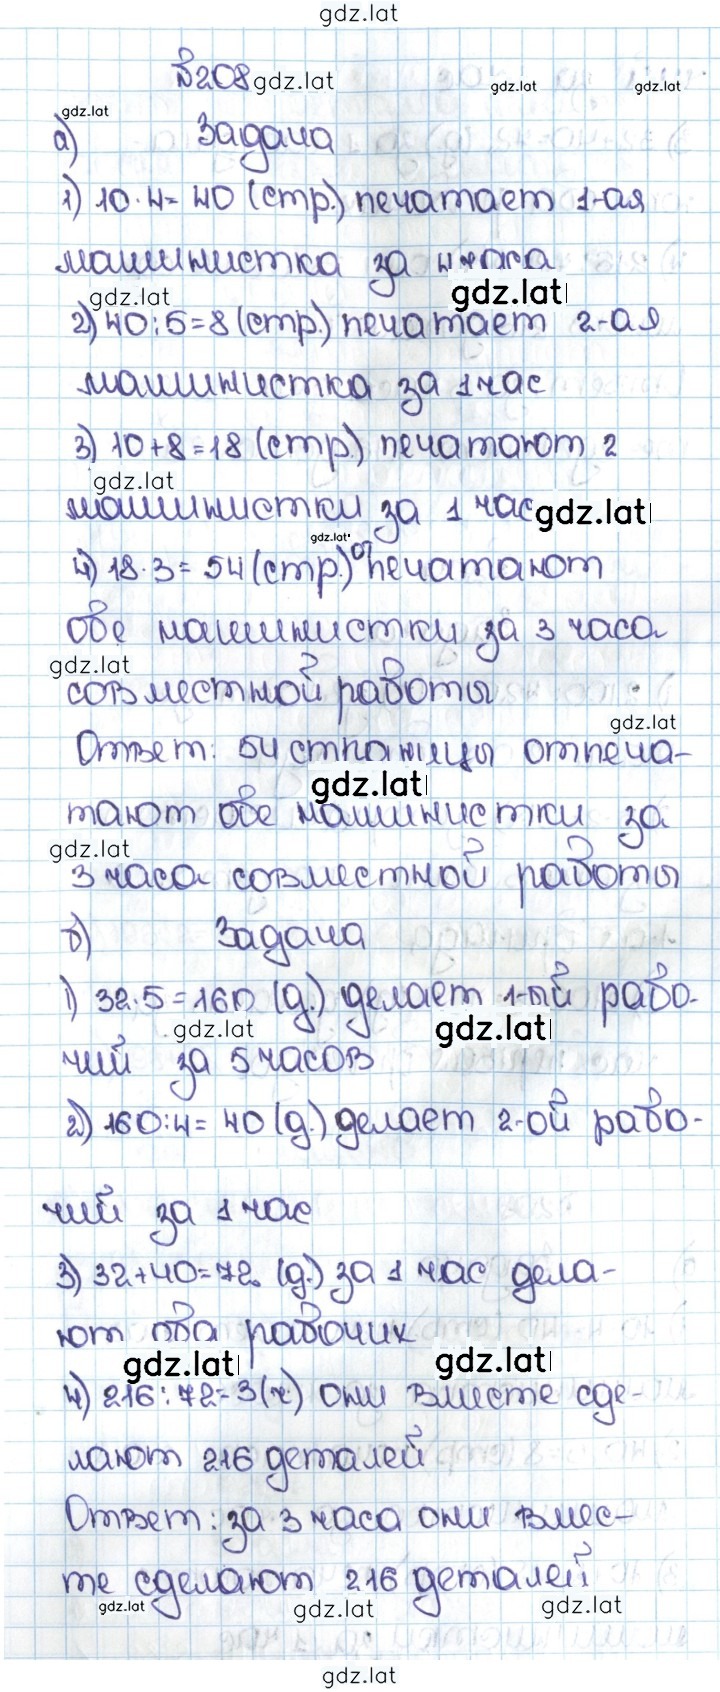 gdz.lat
№208 gdz.lat gdz.lat gdz.lat
gdz.lat
а) Задача
1) 10·4=40 (стр.) печатает 1-ая
машинистка за 4 часа
gdz.lat gdz.lat
2) 40:5=8 (стр.) печатает 2-ая
машинистка за 1 час
3) 10+8=18 (стр.) печатают 2
gdz.lat
машинистки за 1 час gdz.lat
gdz.lat
4) 18·3=54 (стр.) отпечатают
обе машинистки за 3 часа
gdz.lat
совместной работы
gdz.lat
Ответ: 54 страницы отпеча-
gdz.lat
тают обе машинистки за
gdz.lat
3 часа совместной работы
б) Задача
1) 32·5=160 (д.) делает 1-ый рабо-
gdz.lat gdz.lat
чий за 5 часов
2) 160:4=40 (д.) делает 2-ой рабо-
чий за 1 час
3) 32+40=72 (д.) за 1 час дела-
ют оба рабочих
gdz.lat gdz.lat
4) 216:72=3(ч) они вместе сде-
лают 216 деталей
Ответ: за 3 часа они вмес-
те сделают 216 деталей
gdz.lat gdz.lat gdz.lat
gdz.lat